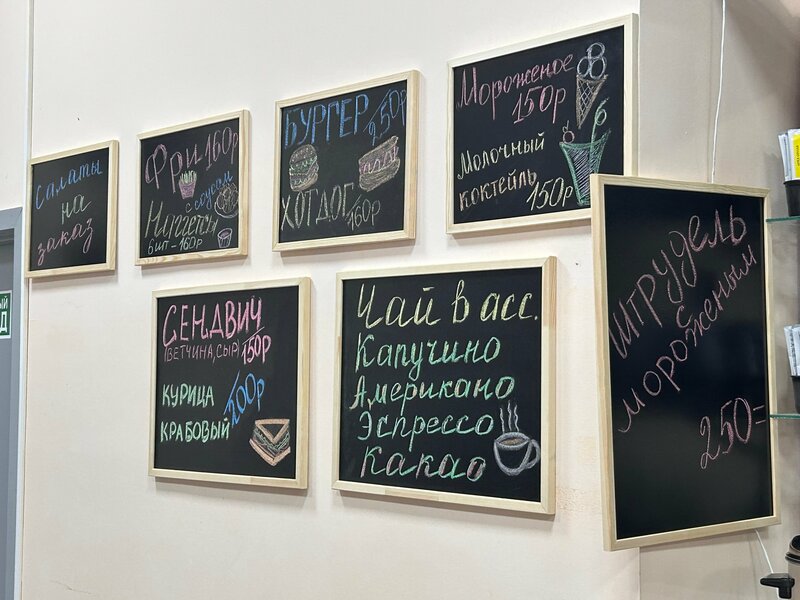 Салаты
на
заказ
Фри 160р
с соусом
Наггетсы
6 шт - 160р
БУРГЕР 250р
ХОТДОГ 160р
Мороженое
150р
Молочный
коктейль 150р
СЕНДВИЧ
(ВЕТЧИНА, СЫР) 150р
КУРИЦА
КРАБОВЫЙ 200р
Чай в асс.
Капучино
Американо
Эспрессо
Какао
Штрудель
с
мороженым
250=